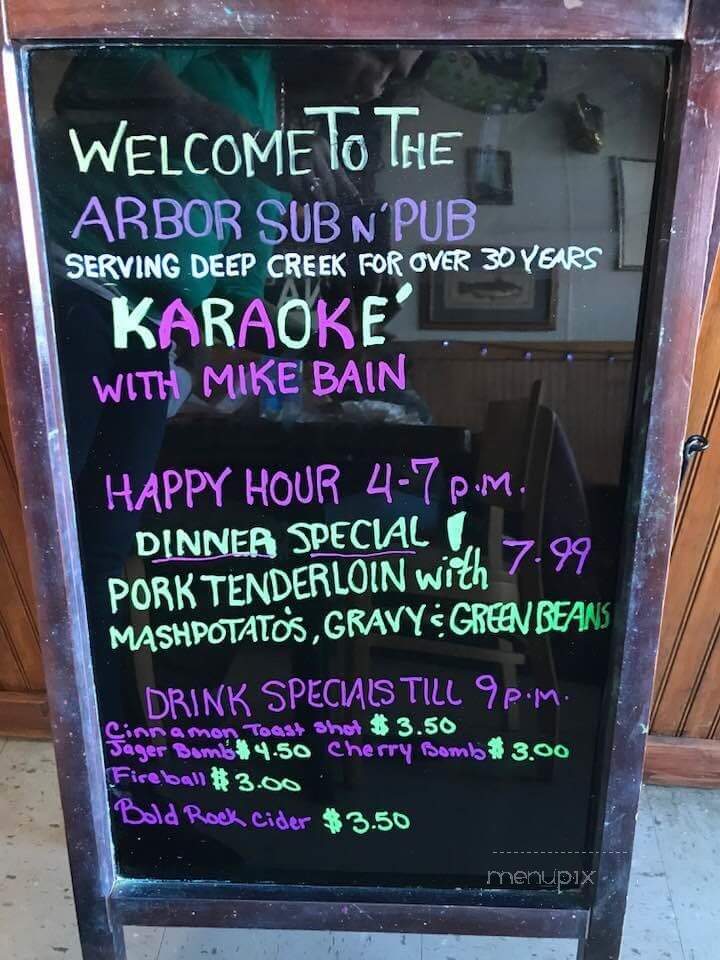 WELCOME TO THE
ARBOR SUB N' PUB
SERVING DEEP CREEK FOR OVER 30 YEARS
KARAOKE'
WITH MIKE BAIN
HAPPY HOUR 4-7 P.M.
DINNER SPECIAL! 7.99
PORK TENDERLOIN with
MASHPOTATO'S, GRAVY & GREEN BEANS
DRINK SPECIALS TILL 9 P.M.
Cinnamon Toast Shot $3.50
Jager Bomb $4.50 Cherry Bomb $3.00
Fireball $3.00
Bold Rock Cider $3.50
menupix